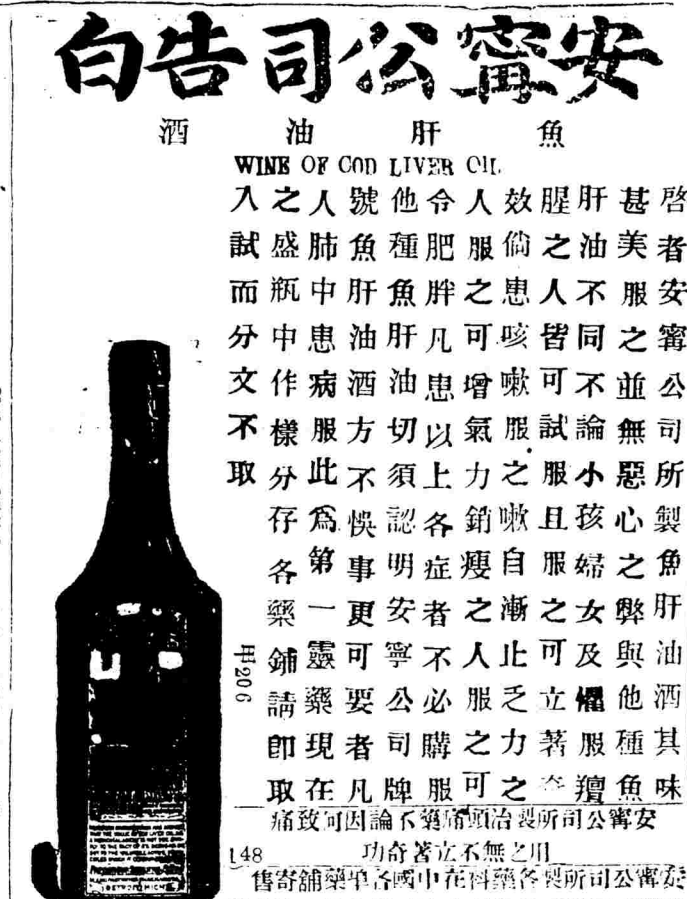 安甯公司告白
魚肝油酒
WINE OF COD LIVER OIL
啓者安甯公司所製魚肝油酒其味
甚美服之並無惡心之弊與他種魚
肝油不同不論小孩婦女及懼服羶
腥之人皆可試服且服之可立著奇
效倘患咳嗽服之嗽自漸止乏力之
人服之可增氣力銷瘦之人服之可
令肥胖凡患以上各症者不必購服
他種魚肝油切須認明安寧公司牌
號魚肝油酒方不悞事更可要者凡
人肺中患病服此爲第一靈藥現在
之盛瓶中作樣分存各藥鋪請即取
入試而分文不取
甲206
安甯公司所製治頭痛藥不論因何致痛
用之無不立著奇功
148
安甯公司所製各藥料在中國各埠藥舖寄售